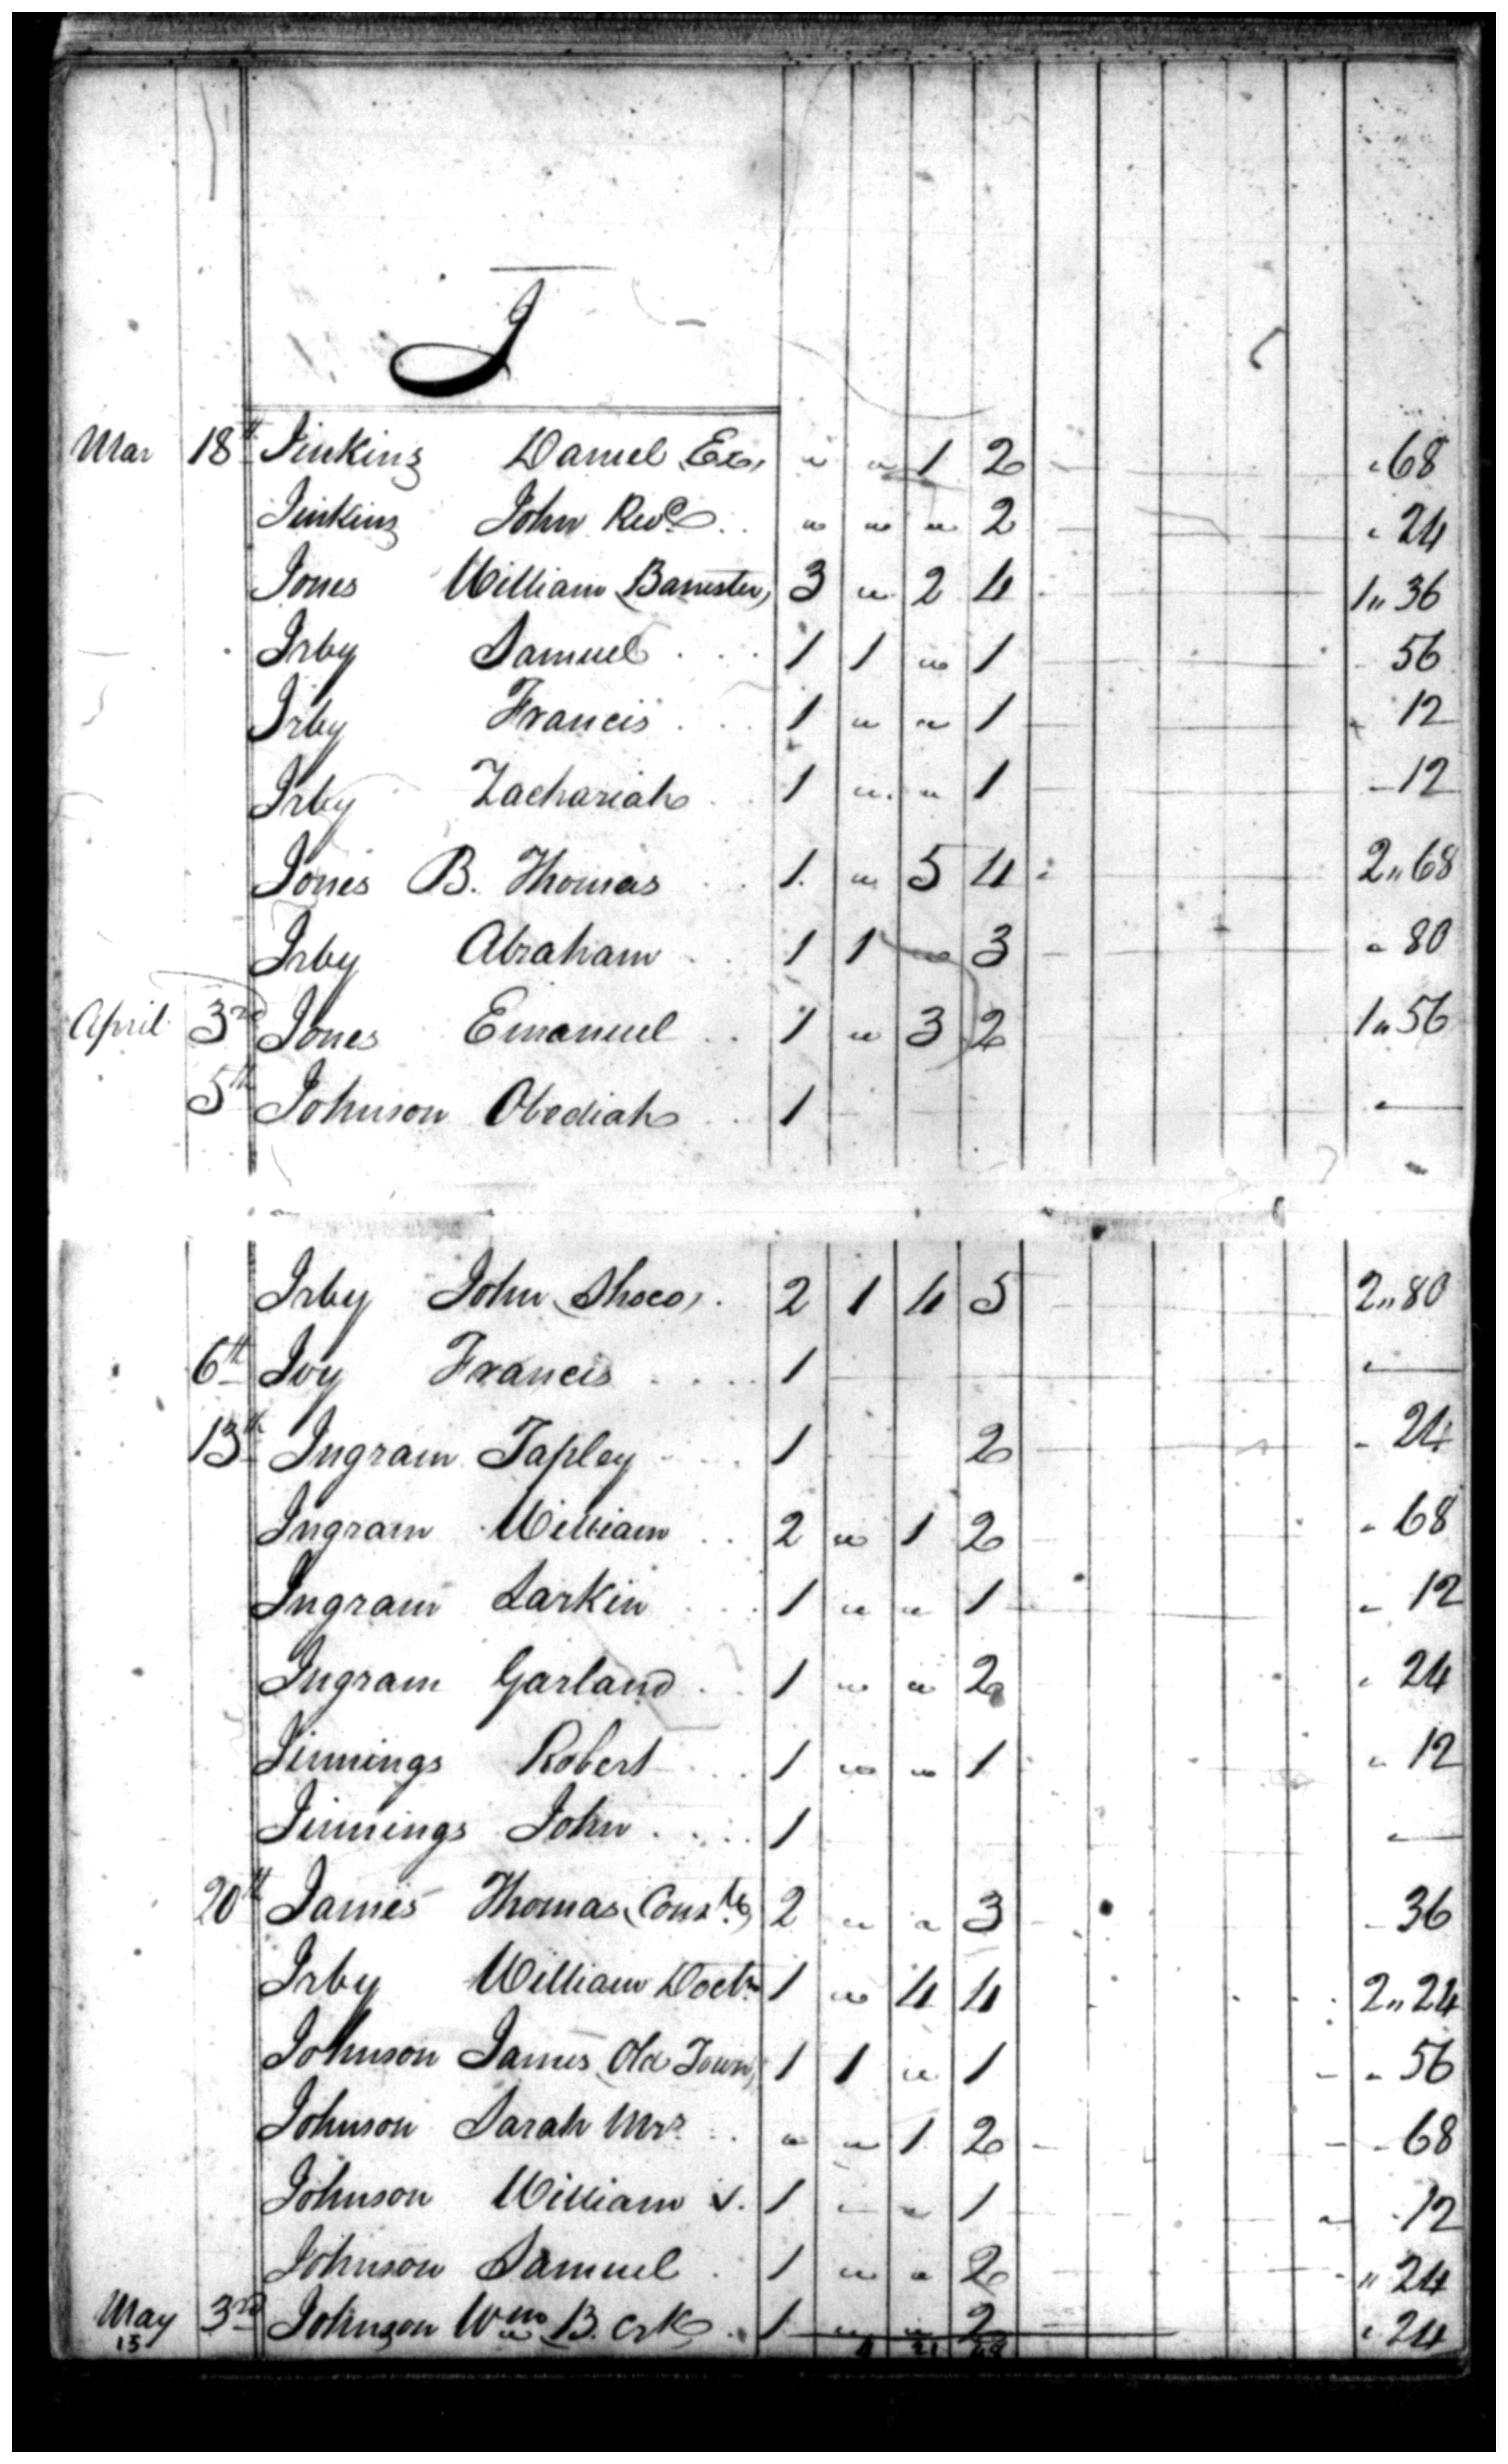 J
Mar 18th Jinkins Daniel Ex, " " 1 2 " 68
Jinkins John Revd " " " 2 " 24
Jones William (Banister) 3 " 2 4 1 " 36
Irby Samuel 1 1 " 1 56
Irby Francis 1 " " 1 " 12
Irby Zachariah 1 " " 1 - 12
Jones B. Thomas 1 " 5 4 2 " 68
Irby Abraham 1 1 " 3 " 80
April 3rd Jones Emanuel 1 " 3 2 1 " 56
5th Johnson Obediah 1 " —
Irby John (Shoco) 2 1 4 5 2 " 80
6th Ivy Francis 1 " —
13th Ingram Tapley 1 2 " 24
Ingram William 2 " 1 2 " 68
Ingram Larkin 1 " " 1 " 12
Ingram Garland 1 " " 2 " 24
Jinnings Robert 1 " " 1 " 12
Jinnings John 1 " —
20th James Thomas (Conste) 2 " " 3 - 36
Irby William Doctr 1 " 4 4 2 " 24
Johnson James (Old Town) 1 1 " 1 " 56
Johnson Sarah Mrs " " 1 2 " 68
Johnson William V. 1 " " 1 " 12
Johnson Samuel 1 " " 2 " 24
May 3rd Johnson Wm B. Crk 1 " " 2 " 24
15 4 21